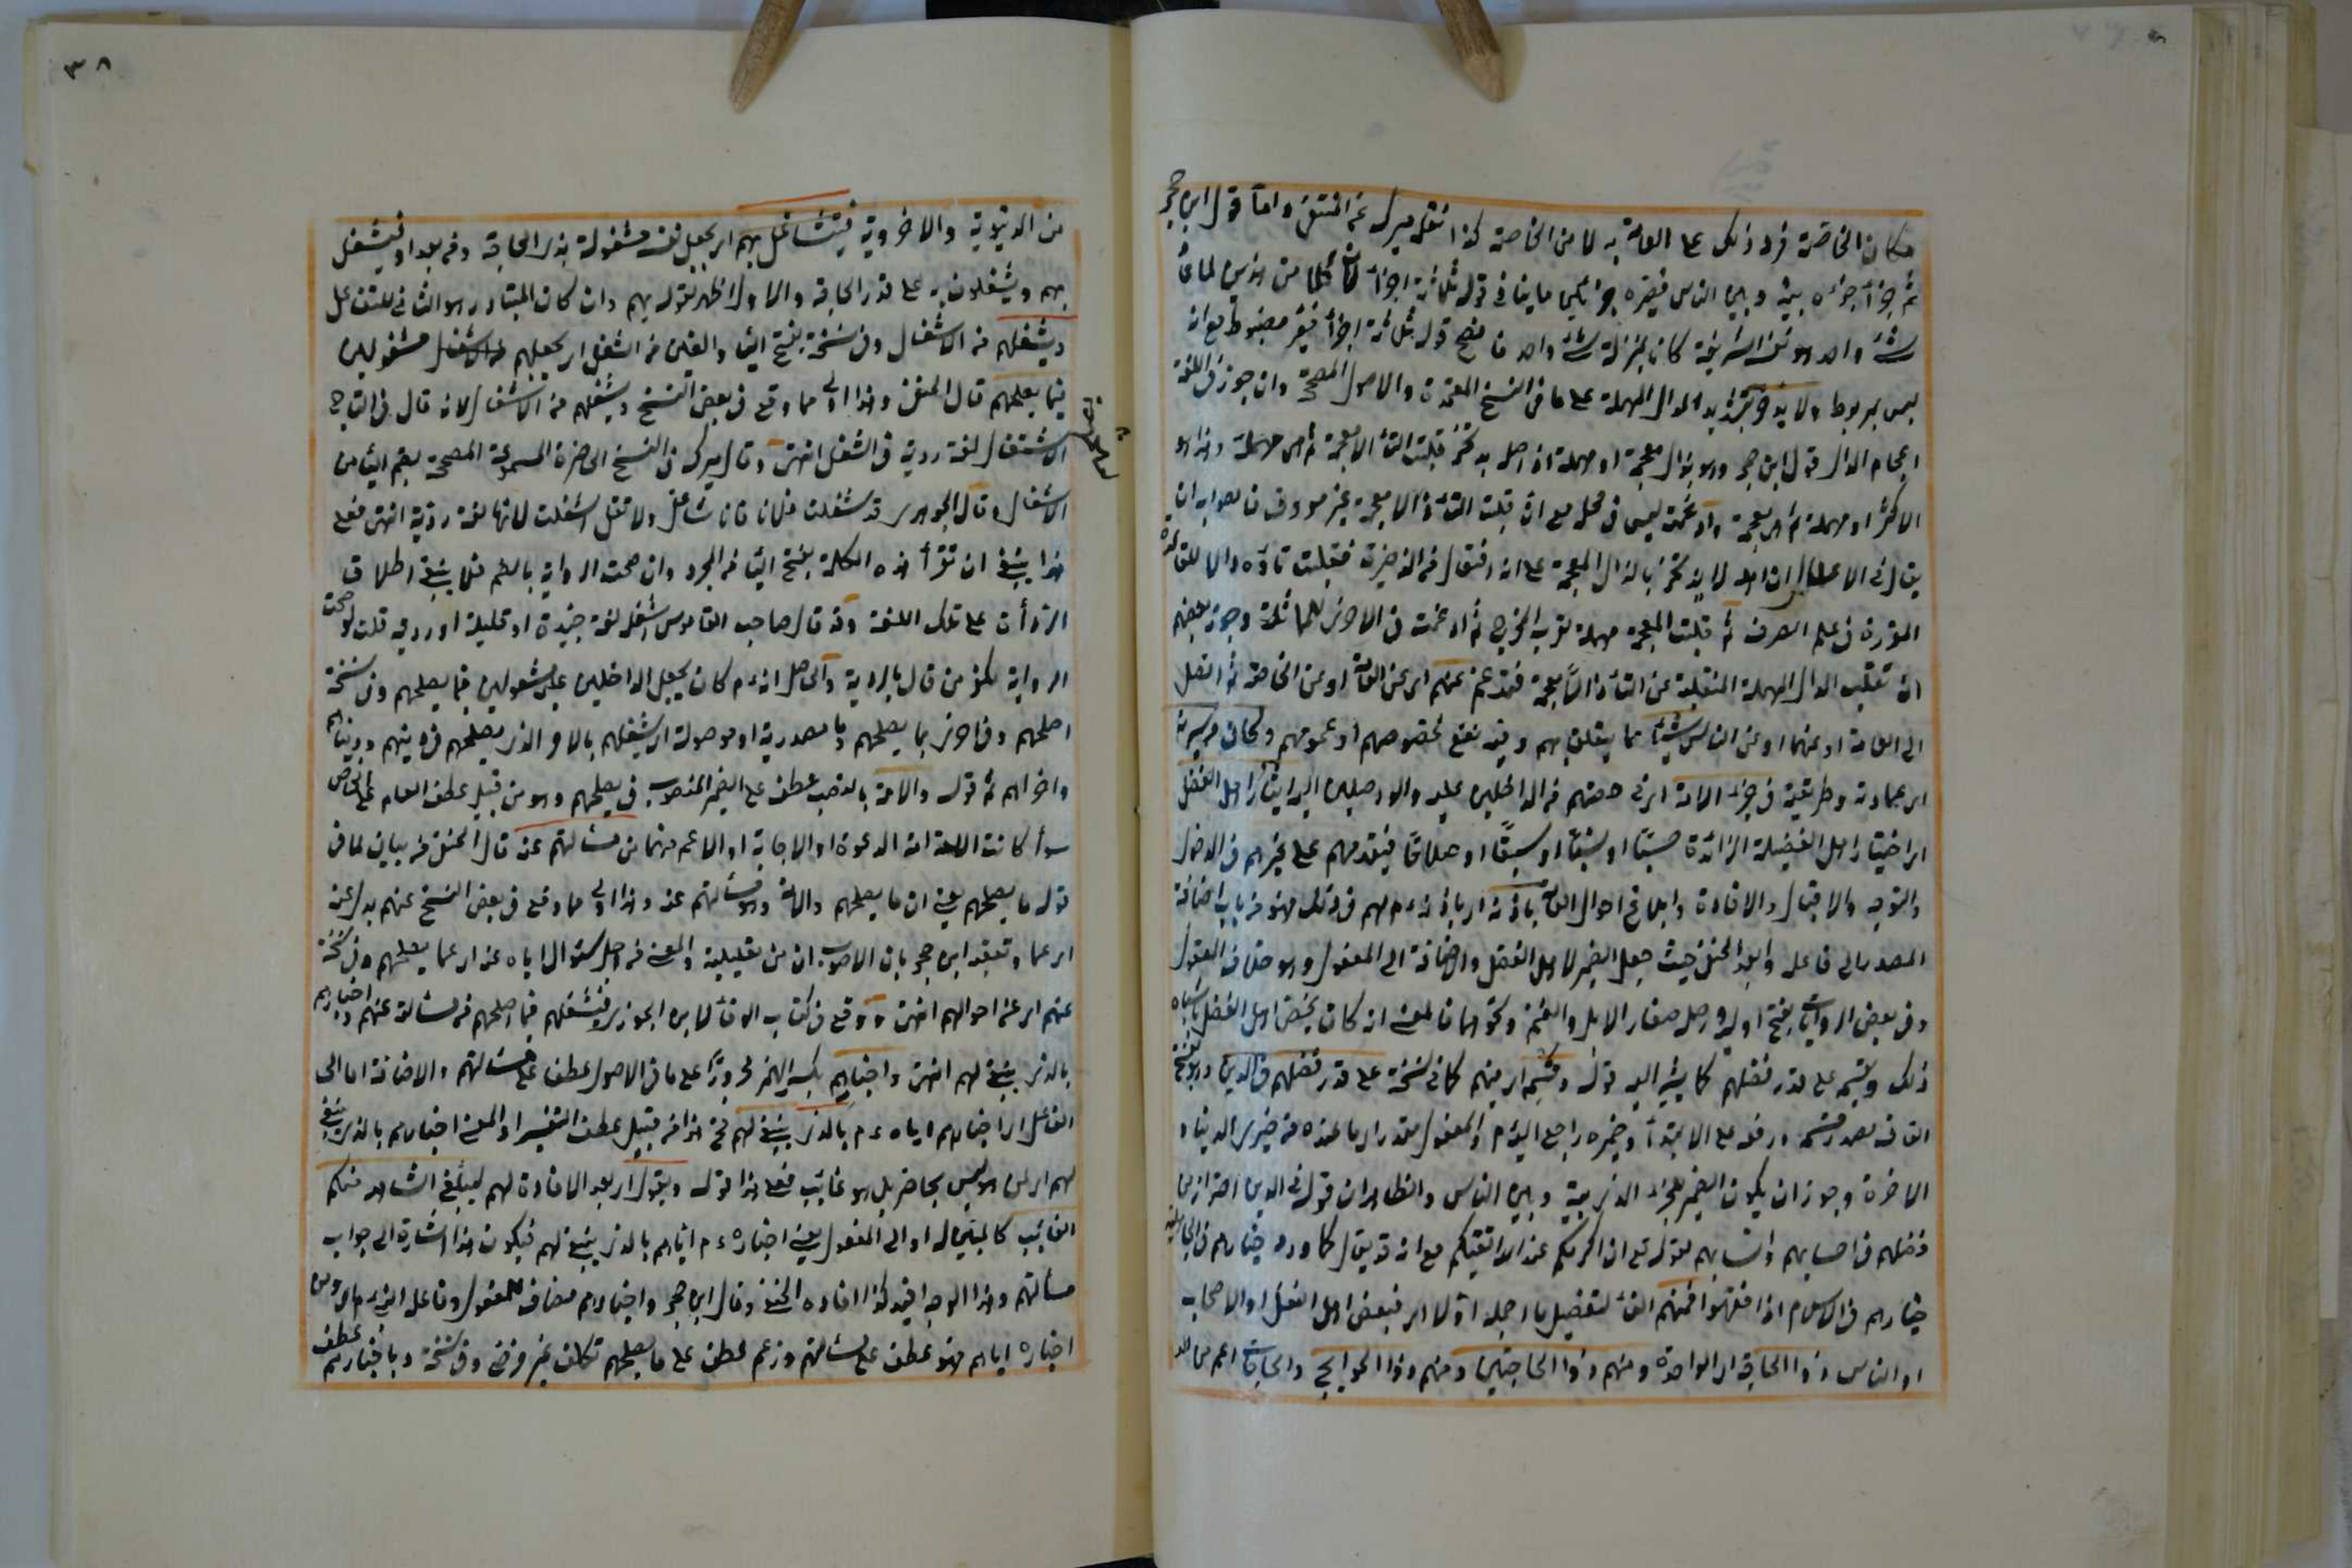 مكان الخاصة فرد ذلك على العامة به لا من الخاصة كذا نقله ميرك عن المنتقى واما قول ابن حجر
ثم جزأ جزءه بينه وبين الناس فيصير جزأين ما ينافي قوله ثلاثة اجزاء لان كلا من الناس لما في
شيء واحد وهو نفسه الشريفة كان بمنزلة شيء واحد فصح قوله ثلاثة اجزاء فغير مضبوط مع انه
ليس بمربوط ولا يدخر بتشديد الدال المهملة على ما في النسخ المعتمدة والاصول المصححة وان جوز في اللغة
اعجام الدال فقول ابن حجر وهو بذال معجمة او مهملة اذ اصله يذتخر قلبت التاء الا معجمة ثم هي مهملة وهذا هو
الاكثر او مهملة ثم هي معجمة وادغمت ليس في محله مع ان قلبت التاء ذالا معجمة غير معروف فالصواب ان
يقال في الاعلال ان اصله لا يذتخر بالذال المعجمة على انه افتعال من الذخيرة فقلبت تاؤه دالا للقاعدة
المقررة في علم الصرف ثم قلبت المعجمة مهملة لقرب المخرج ثم ادغمت في الاخرى للمماثلة وجوز بعضهم
ان تقلب الدال المهملة المنقلبة عن التاء ذالا معجمة فتدغم عنهم اي عن العامة او عن الخاصة ثم اتصل
الى العامة او عنهما او عن الناس شيئا مما يتعلق بهم وفيه نفع لخصوصهم او عمومهم وكان من سيرته
اي عادته وطريقته في جزء الامة اي في حصتهم من الداخلين عليه والواصلين اليه ايثار اهل الفضل
اي اختيار اهل الفضيلة الزائدة حسبا او نسبا او سبقا او صلاحا فيقدمهم على غيرهم في الدخول
والتوجه والاقبال والافادة وابلاغ احوال العامة باذنه اي باذنه عم لهم في ذلك فهو من باب اضافة
المصدر الى فاعله وابعد الحنفي حيث جعل الضمير لاهل الفضل واضافته الى المفعول وهو خلاف المعقول
وفي بعض الروايات بفتح اوله واصله صغار الابل والغنم ونحوهما فالمعنى انه كان يخص اهل الفضل باشياه
ذلك وقسمه على قدر فضلهم كما يشير اليه قوله وقسمه اي بينهم كما في نسخة على قدر فضلهم في الدين وهو بفتح
القاف مصدر قسم ورفعه على الابتداء وضميره راجع اليه عم والمفعول مقدر اي ما عنده من خيري الدنيا و
الاخرة وجوز ان يكون الضمير لجزء الذي بينه وبين الناس والظاهر ان قوله في الدين احتراز من
فضلهم في احسابهم وانسابهم لقوله تع ان اكرمكم عند الله اتقيكم مع انه قد يقال كما ورد خياركم في الجاهلية
خياركم في الاسلام اذا فقهوا فمنهم الفاء لتفصيل ما اجمله اولا اي فبعض اهل الفضل او الاصحاب
او الناس ذوا الحاجة اي الواحدة ومنهم ذوا الحاجتين ومنهم ذوا الحوايج والحاجات اعم من
من الدنيوية والاخروية فيتشاغل بهم اي يجعل نفسه مشغولة بذي الحاجة ومن بعدا وفيشتغل
بهم ويشغلون به على قدر الحاجة والاول اظهر لقوله بهم وان كان المتبادر هو الثاني للتفاعل
ويشغلهم من الاشغال وفي نسخة بفتح الياء والغين من الشغل اي يجعلهم مشغولين
فيما يصلحهم قال الحنفي وهذا اولى مما وقع في بعض النسخ ويشغلهم من الاشغال لانه قال في التاج
الاشغال لغة ردية في الشغل انتهى وقال ميرك في النسخ الحاضرة المسموعة المصححة بضم الياء من
الاشغال وقال الجوهري قد شغلت فلانا فانا شاغل ولا تقل اشغلت لانها لغة ردية انتهى فعلى
هذا ينبغي ان تقرأ هذه الكلمة بفتح الياء من المجرد وان صحت الرواية بالضم فلا ينبغي اطلاق
الردأت على تلك اللغة وقد قال صاحب القاموس اشغله لغة جيدة او قليلة او ردية قلت لو صحت
الرواية لكفر من قال بالردية والحاصل انه عم كان يجعل الداخلين عليه مشغولين فيما يصلحهم وفي نسخة
اصلحهم وفي اخرى بما يصلحهم وما مصدرية او موصولة اي يشغلهم بالامر الذي يصلحهم في دينهم ودنياهم
واخراهم ثم قوله والامة بالنصب عطف على الضمير المنصوب في يصلحهم وهو من قبيل عطف العام على الخاص
سواء كانت الامة امة الدعوة او الاجابة او الاعم منهما من مسائلتهم عنه قال الحنفي من بيان لما في
قوله ما يصلحهم يعني ان ما يصلحهم والامة وهو مسائلتهم عنه وهذا اولى مما وقع في بعض النسخ عنهم بدل عنه
اي عما وتعقبه ابن حجر بان الاصوب ان من تعليلية والمعنى من اجل سؤال اياه عنه اي عما يصلحهم وفي نسخة
عنهم اي عن احوالهم انتهى ووقع في كتاب الوفا لابن الجوزي فيشغلهم فيما اصلحهم من مسائلته عنهم واخبارهم
بالذي ينبغي لهم انتهى واخبارهم بكسر الهمزة مجرورا على ما في الاصول عطف على مسائلتهم والاضافة اما الى
الفاعل اي اخبارهم اياه عم بالذي ينبغي لهم فح هذا من قبيل عطف التفسير او المعنى اخبارهم بالذي ينبغي
لهم اي لمن هو ليس بحاضر بل هو غائب فعلى هذا قوله ويقول اي بعد الافادة لهم ليبلغ الشاهد منكم
الغائب كالمبين له او الى المفعول يعني اخباره عم اياهم بالذي ينبغي لهم فيكون هذا اشارة الى جواب
مسألتهم وهذا الوجه افيد كذا افاده الحنفي وقال ابن حجر واخبارهم مضاف للمفعول وفاعله النبي عم اي ومن
اخباره اياهم فهو عطف على مسائلتهم وزعم عطف على ما يصلحهم تكلف غير مرضي وفي نسخة وباخبارهم عطف